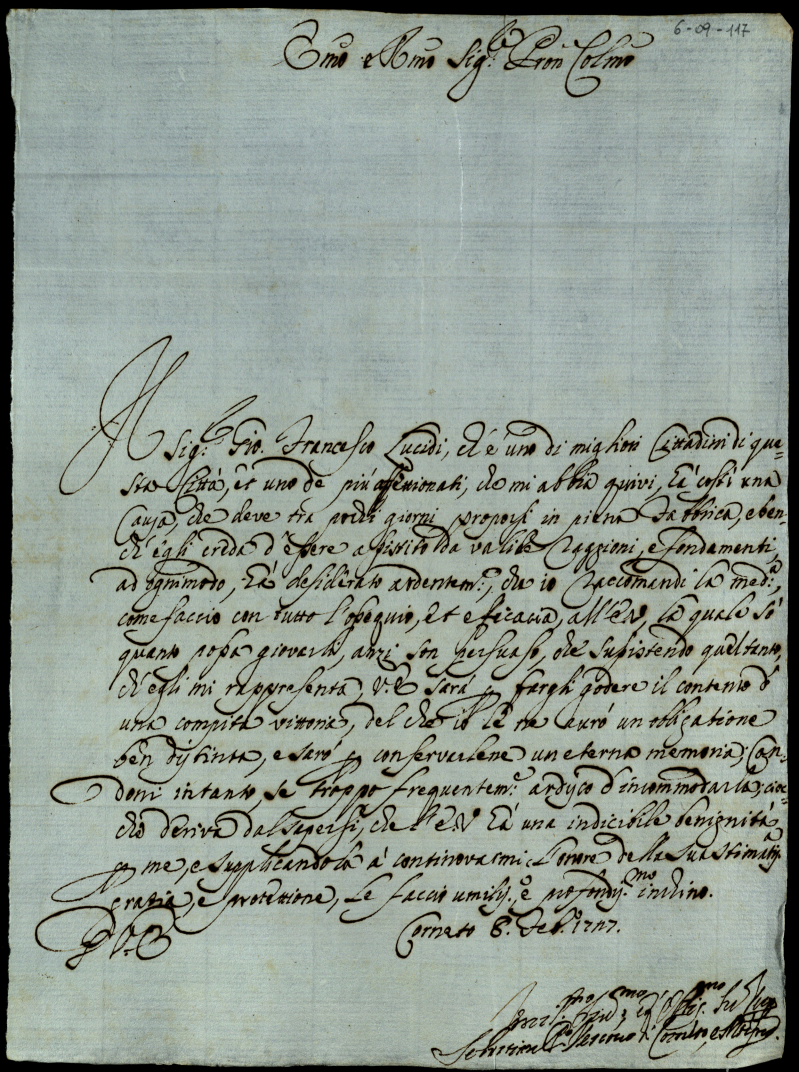 6-09-117
Emo e Rmo Sig.re Pron Colmo
Il Sig.re Gio. Francesco Lucidi, ch'è uno di migliori Cittadini di que-
sta Città, et uno de più affezionati, che mi abbia quivi, hà costì una
Causa, che deve tra pochi giorni proporsi in piena Rabbrica, e ben-
ch'egli creda d'essere assistito da valide raggioni, e fondamenti,
ad ognimodo, hà desiderato ardentem.e, che io raccomandi la med.a,
come faccio con tutto l'ossequio, et efficacia, all'E.V., la quale sò
quanto possa giovarli, anzi son persuaso, che susistendo quel tanto,
ch'egli mi rappresenta, V.E. sarà p fargli godere il contento d'
una compita vittoria, del che io le ne aurò un obligatione
ben distinta, e sarò p conservarlene un eterna memoria; Con-
doni intanto, se troppo frequentem.e ardisco d'incommodarla; cioc-
che deriva dal sapersi, che l'E.V. hà una indicibile benignità
p me, e supplicandola à continovarmi l'onore della sua stimatis.a
grazia, e protettione, le faccio umilis.o e profondis.mo inchino.
D V.E. Corneto 8. Feb.o 1727.
Sebastiano Vescovo di Corneto, e Montef.